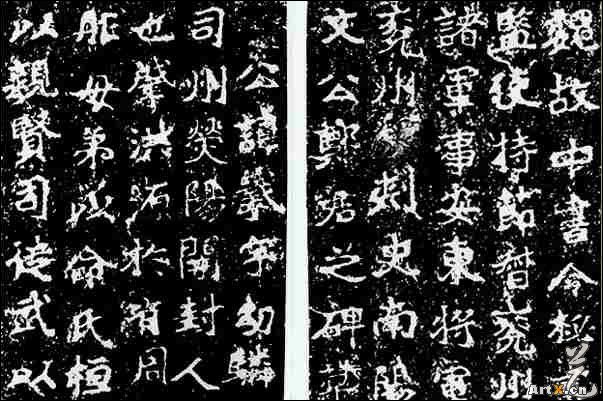 魏故中書令秘
監使持節督兗州
諸軍事安東將軍
兗州刺史南陽
文公鄭君之碑草
公諱羲字幼驎
司州熒陽開封人
也肇洪源於有周
胙母弟以命氏桓
以親賢司徒武以
ArtX.cn